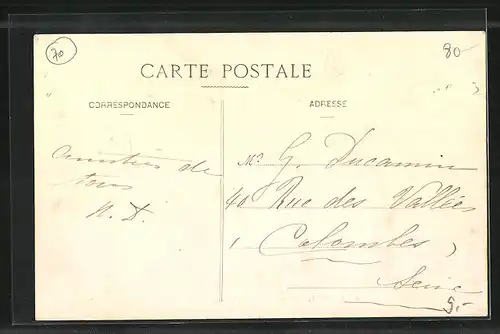 70
80-
CARTE POSTALE
CORRESPONDANCE
ADRESSE
Amitiés de
tous
N. D.
Mr. G. Ducamin
40 Rue des Vallées
Colombes
Seine
9.-